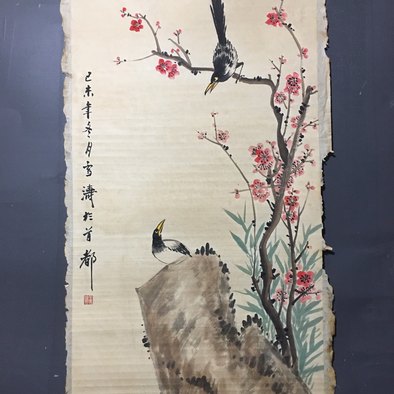 己未年冬月雪涛於首都